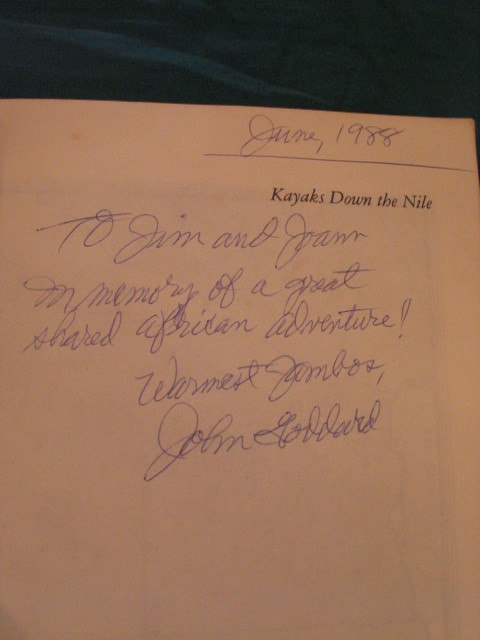 June, 1988
Kayaks Down the Nile
To Jim and Joann
In memory of a great
shared african adventure!
Warmest Jambos,
John Goddard